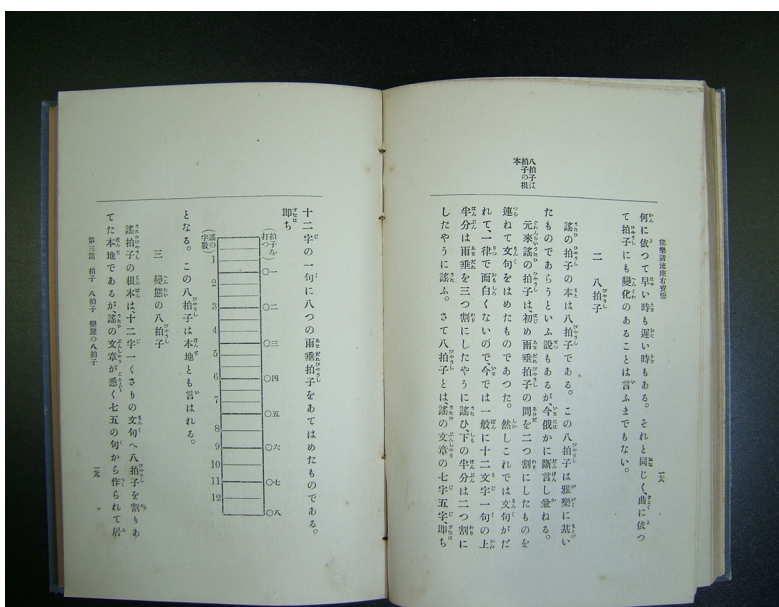 能樂諸流座右寶鑑
何に依つて早い時も遲い時もある。それと同じく、曲に依つ
て拍子にも變化のあることは言ふまでもない。
二 八拍子
八拍子は
拍子の根
本
謠の拍子の本は八拍子である。この八拍子は雅樂に基い
たものであらうといふ說もあるが、今俄かに斷言し兼ねる。
元來謠の拍子は、初め雨垂拍子の間を二つ割にしたものを
連ねて文句をはめたものであつた。然しこれでは文句がだ
れて、一律で面白くないので、今では一般に十二文字一句の上
半分は雨垂を三つ割にしたやうに謠ひ、下の半分は二つ割に
したやうに謠ふ。さて八拍子とは、謠の文章の七字五字、即ち
十二字の一句に八つの雨垂拍子をあてはめたものである。
即ち
(拍子を打つ)
〇一
〇二
〇三
〇四
〇五
〇六
〇七
〇八
(謠の字數)
1
2
3
4
5
6
7
8
9
10
11
12
となる。この八拍子は本地とも言はれる。
三 變態の八拍子
謠拍子の根本は、十二字一くさりの文句へ八拍子を割りあ
てた本地であるが、謠の文章が悉く七五の句から作られて居
第三篇 拍子 八拍子 變態の八拍子